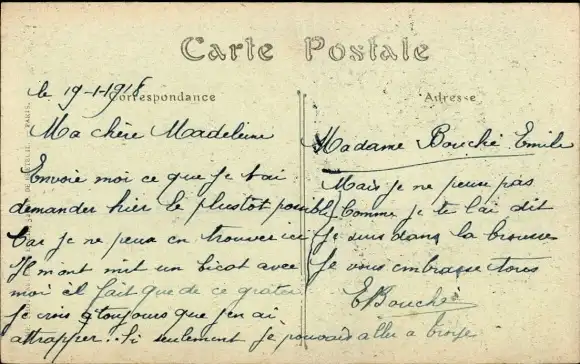 Carte Postale
le 19-1-1918
Correspondance
Ma chère Madeleine
Envoie moi ce que je t'ai
demander hier le plustot possible
Car je ne peux en trouver ici
Il m'ont mit un bicot avec
moi il fait que de ce grater
je crois toujours que j'en ai
attrapper... Si seulement je pouvais aller a
Adresse
Madame Bouché Emile
Mais je ne peux pas
Comme je te l'ai dit
Je suis dans la brousse
Je vous embrasse tous
EBouché
PARIS.